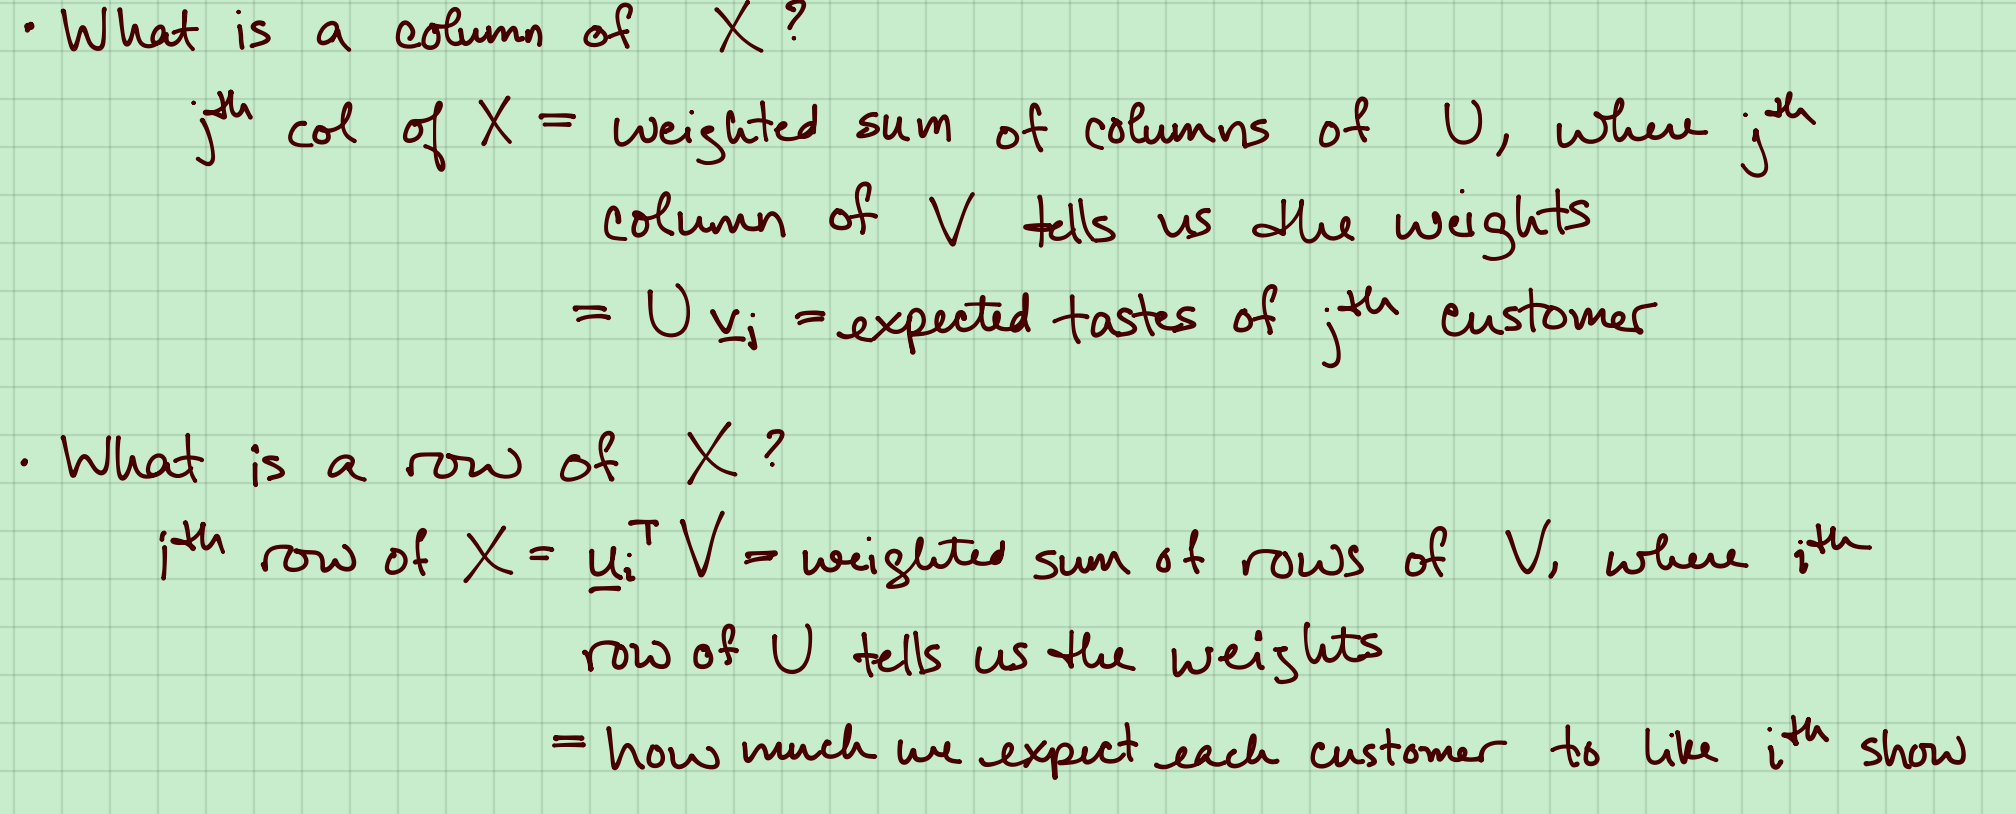 · What is a column of X?
jᵗʰ col of X = weighted sum of columns of U, where jᵗʰ
column of V tells us the weights
= U v̲ⱼ = expected tastes of jᵗʰ customer
· What is a row of X?
iᵗʰ row of X = u̲ᵢᵀ V = weighted sum of rows of V, where iᵗʰ
row of U tells us the weights
= how much we expect each customer to like iᵗʰ show